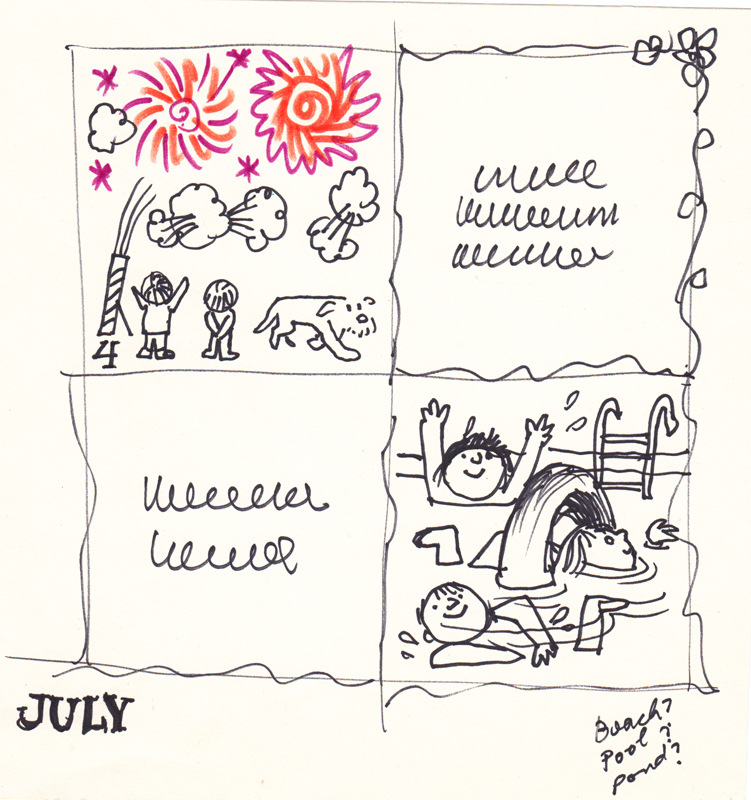 4
JULY
Beach?
Pool?
Pond?